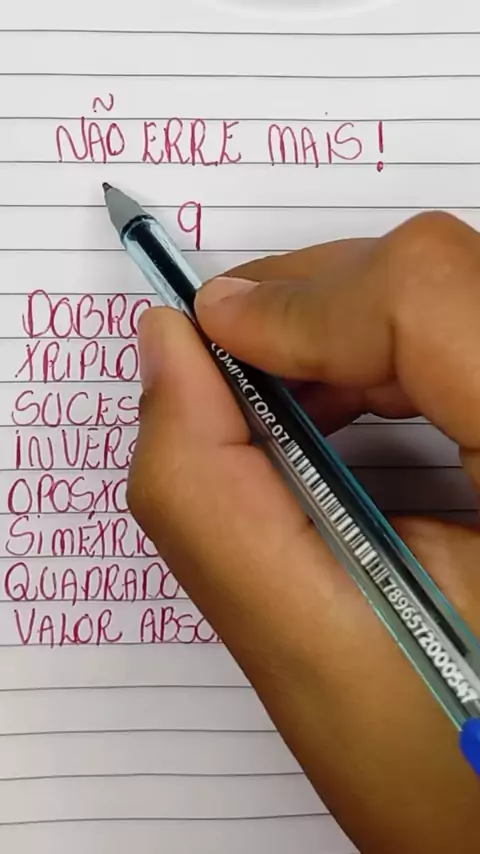 NÃO ERRE MAIS!
9
DOBRO
TRIPLO
SUCES
INVERS
OPOSTO
SIMÉTRIC
QUADRADO
VALOR ABSO
COMPACTOR 07 7896572000547